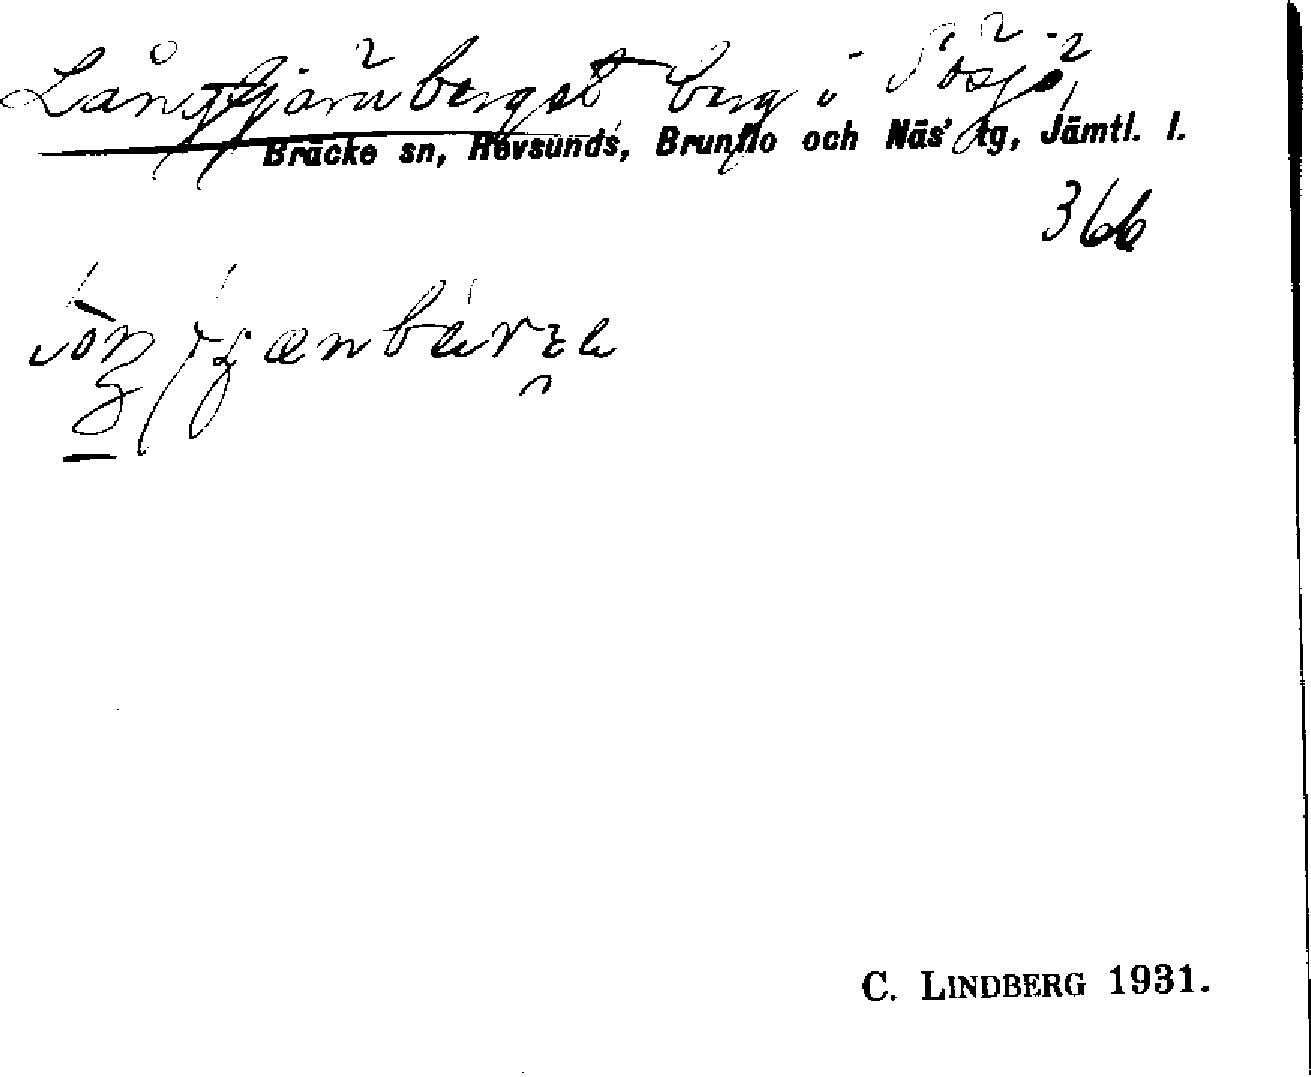 Långtjärnberget berg i Rösjö,
Bräcke sn, Revsunds, Brunflo och Näs' tg, Jämtl. l.
366
C. LINDBERG 1931.